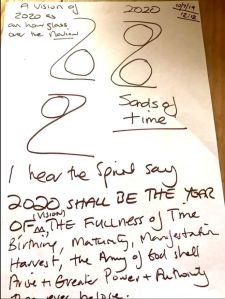 A Vision of
2020 as
an hour glass
over the Nation
2020
10/9/19
12:12
Sands of
time
I hear the Spirit say
2020 SHALL BE THE YEAR
OF (VISION) THE Fullness of Time
Birthing, Maturity, Manifestation
Harvest, the Army of God shall
Arise in Greater Power + Authority
than ever before.